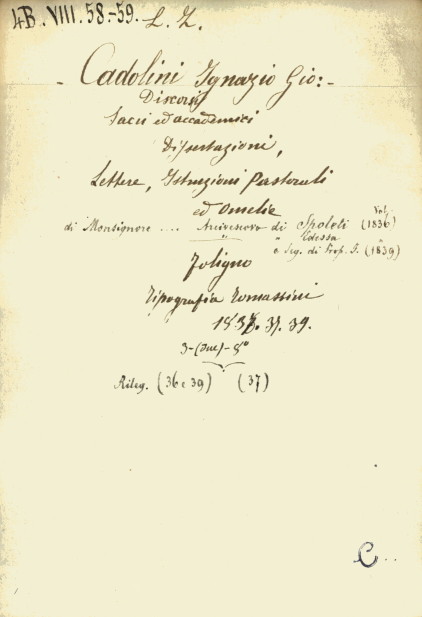 4B. VIII. 58.-59. L. Z.
- Cadolini Ignazio Gio: -
Discorsi
Sacri ed accademici
Dissertazioni,
Lettere, Istruzioni Pastorali
ed Omelie Vol.
di Monsignore .... Arcivescovo di Spoleti (1836)
" " Edessa "
e Seg. di Prop. F. (1839)
Foligno
Tipografia Tomassini
1836. 37. 39.
3-(due)-8°
Rileg. (36 e 39) (37)
C..